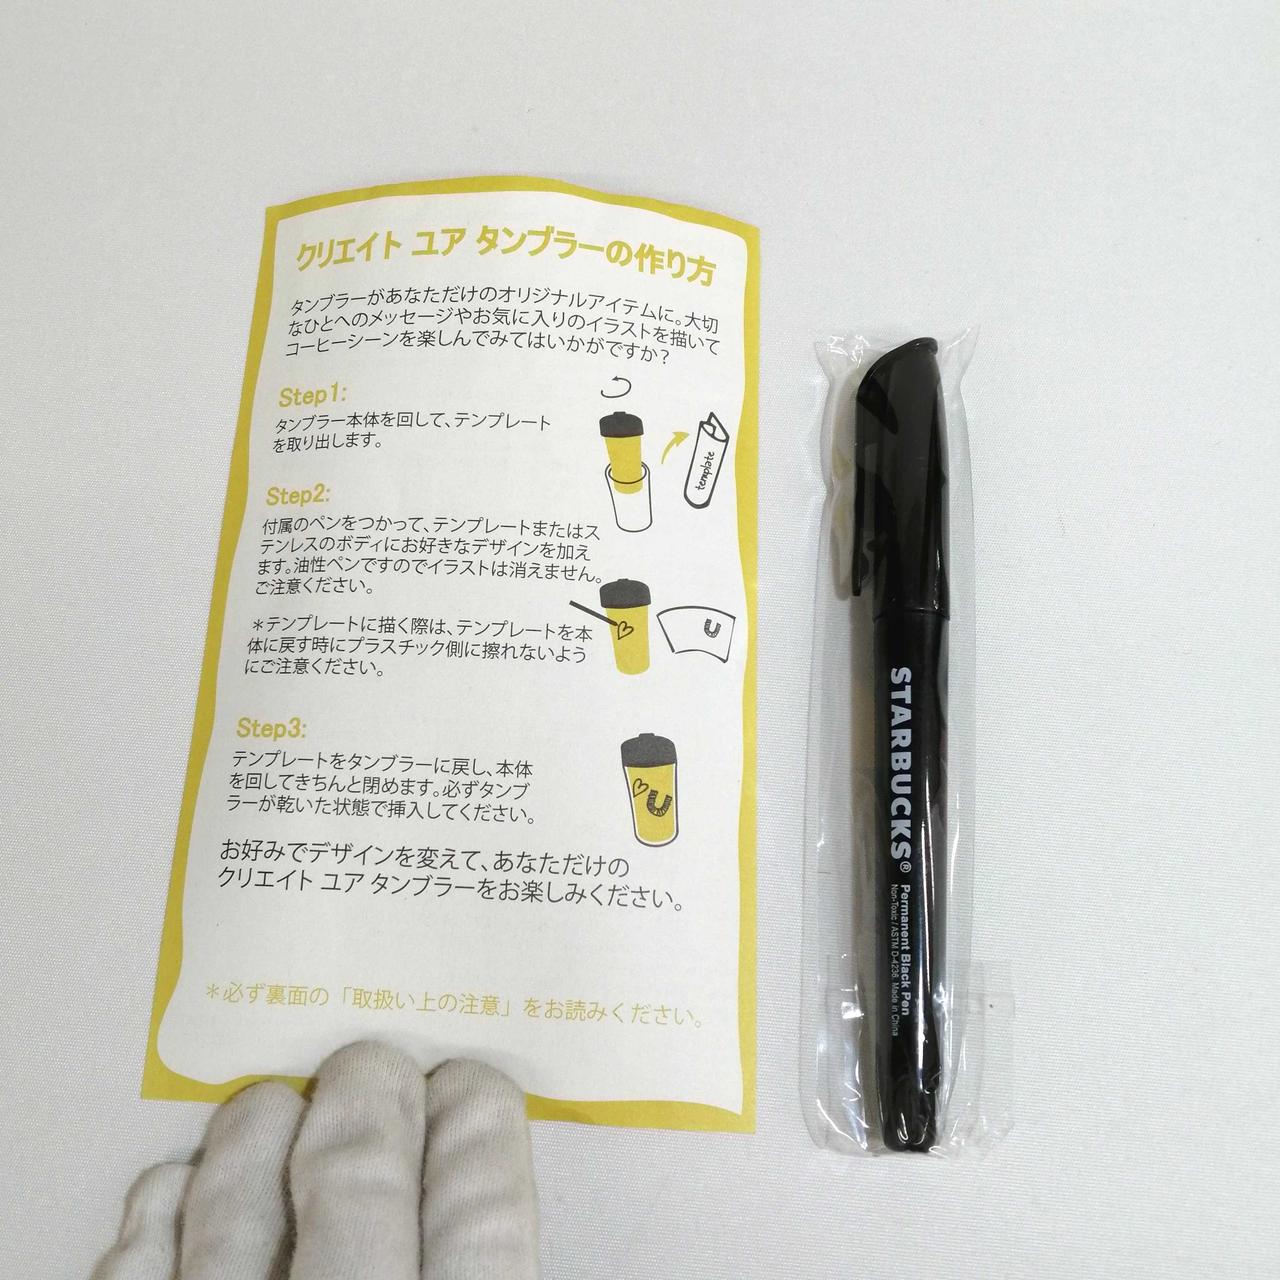 クリエイト ユア タンブラーの作り方
タンブラーがあなただけのオリジナルアイテムに。大切
なひとへのメッセージやお気に入りのイラストを描いて
コーヒーシーンを楽しんでみてはいかがですか？
Step1:
タンブラー本体を回して、テンプレート
を取り出します。
template
Step2:
付属のペンをつかって、テンプレートまたはス
テンレスのボディにお好きなデザインを加え
ます。油性ペンですのでイラストは消えません。
ご注意ください。
＊テンプレートに描く際は、テンプレートを本
体に戻す時にプラスチック側に擦れないよう
にご注意ください。
Step3:
テンプレートをタンブラーに戻し、本体
を回してきちんと閉めます。必ずタンブ
ラーが乾いた状態で挿入してください。
お好みでデザインを変えて、あなただけの
クリエイト ユア タンブラーをお楽しみください。
＊必ず裏面の「取扱い上の注意」をお読みください。
STARBUCKS®
Permanent Black Pen
Non-Toxic / ASTM D-4236. Made in China